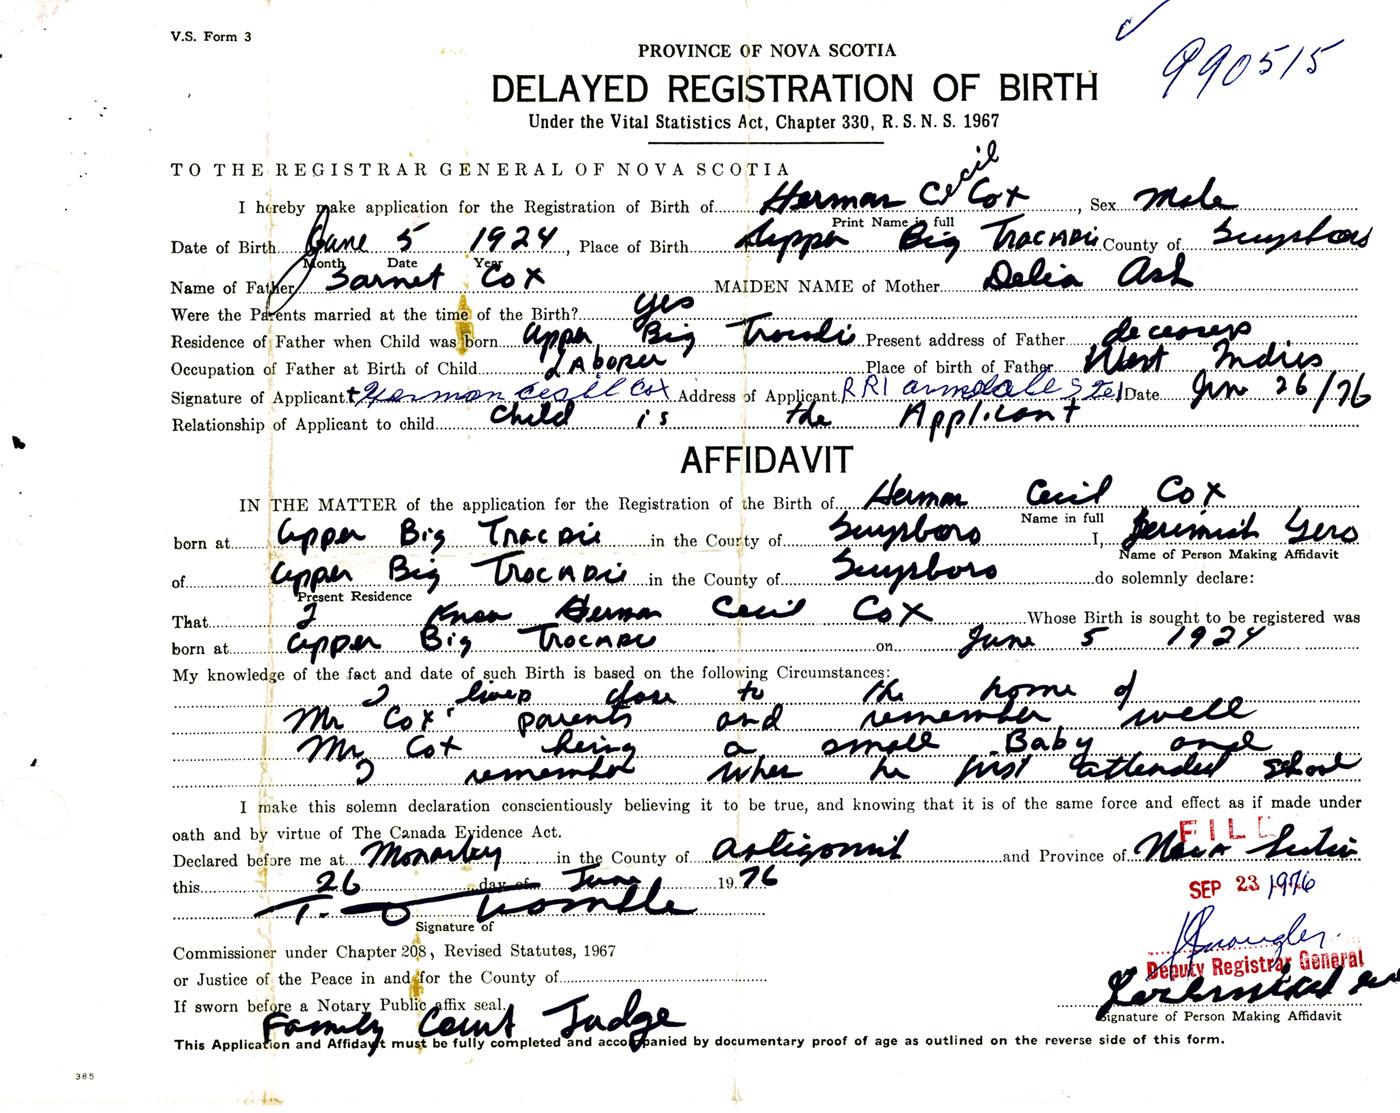 V.S. Form 3
990515
PROVINCE OF NOVA SCOTIA
DELAYED REGISTRATION OF BIRTH
Under the Vital Statistics Act, Chapter 330, R.S.N.S. 1967
TO THE REGISTRAR GENERAL OF NOVA SCOTIA
I hereby make application for the Registration of Birth of Herman Cecil Cox, Sex Male
Print Name in full
Date of Birth June 5 1924, Place of Birth Upper Big Tracadie County of Guysboro
Month Date Year
Name of Father Garnet Cox MAIDEN NAME of Mother Delia Ash
Were the Parents married at the time of the Birth? yes
Residence of Father when Child was born Upper Big Tracadie Present address of Father deceased
Occupation of Father at Birth of Child Laborer Place of birth of Father West Indies
Signature of Applicant Herman Cecil Cox Address of Applicant RR1 Armdale Date Jun 26/76
Relationship of Applicant to child Child is the Applicant
AFFIDAVIT
IN THE MATTER of the application for the Registration of the Birth of Herman Cecil Cox
Name in full
born at Upper Big Tracadie in the County of Guysboro I, Jerimiah Gero
Name of Person Making Affidavit
of Upper Big Tracadie in the County of Guysboro do solemnly declare:
Present Residence
That I know Herman Cecil Cox Whose Birth is sought to be registered was
born at Upper Big Tracadie on June 5 1924
My knowledge of the fact and date of such Birth is based on the following Circumstances:
I lived close to the home of
Mr Cox' parents and remember well
Mr Cox being a small Baby and
I remember when he first attended school
I make this solemn declaration conscientiously believing it to be true, and knowing that it is of the same force and effect as if made under
oath and by virtue of The Canada Evidence Act.
Declared before me at Monastery in the County of Antigonish and Province of Nova Scotia
FILED
this 26 day of June 1976
SEP 23 1976
Signature of
Commissioner under Chapter 208, Revised Statutes, 1967
or Justice of the Peace in and for the County of
Deputy Registrar General
If sworn before a Notary Public affix seal.
Signature of Person Making Affidavit
Family Court Judge
This Application and Affidavit must be fully completed and accompanied by documentary proof of age as outlined on the reverse side of this form.
385